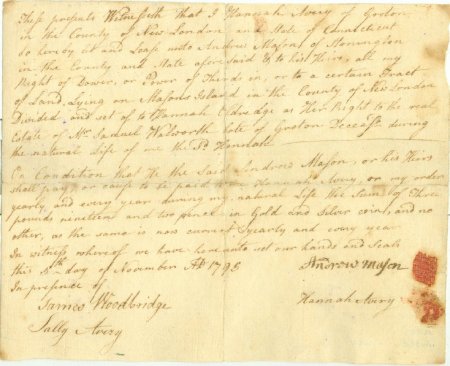 These presents Witnesseth that I Hannah Avery of Groton
in the County of New London and State of Connecticut
do hereby let and Leass unto Andrew Mason of Stonington
in the County and State aforesaid & to his Heirs, all my
Right of Dower, or Power of Thirds in, or to a certain Tract
of Land, Lying on Masons Island in the County of New London
Divided and set of to Hannah as Her Right to the real
Estate of Mr. Samuel Walworth late of Groton during
the natural life of me the Sd Hannah
On Condition that He the Said Andrew Mason, or his Heirs
shall pay, or cause to be paid Hannah Avery, or my order
yearly and every year during my natural Life the Sum of Three
pounds nineteen and two pence in Gold and Silver coin, and no
other, as the same is now current yearly and every year
In witness whereof we have hereunto set our hands and Seals
this day of November AD 1795
In presence of
Andrew Mason
James Woodbridge
Hannah Avery
Sally Avery